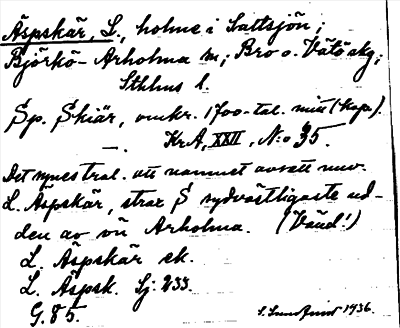 Äspskär, L., holme i Saltsjön;
Björkö-Arholma sn; Bro o. Vätö skg;
Sthlms l.
Sp. Skiär, omkr. 1700-tal. mitt (kop).
—. KrA, XXII, N:o 35.
Det synes tral. att namnet avsett nuv.
L. Äspskär, strax S sydvästligaste ud-
den av ön Arholma. (Vänd!)
L. Äspskär ek.
L. Äspsk. Sj. 233.
G. 85. 1936.